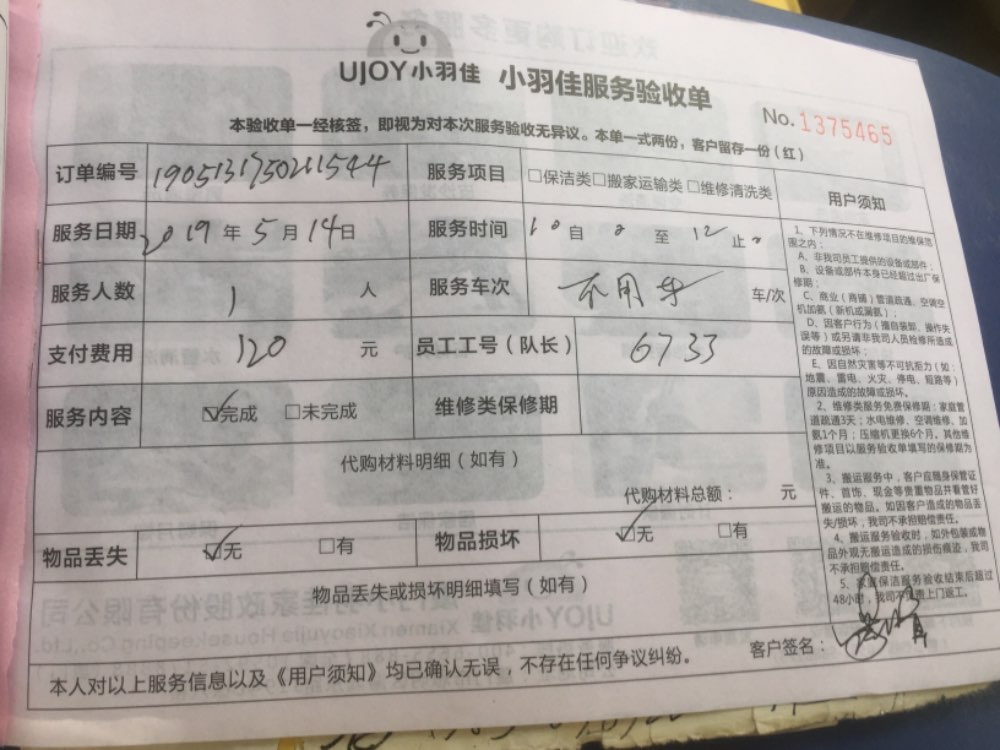 UJOY小羽佳 小羽佳服务验收单
No. 1375465
本验收单一经核签，即视为对本次服务验收无异议。本单一式两份，客户留存一份（红）
订单编号 1905131750211544 服务项目 □保洁类□搬家运输类□维修清洗类 用户须知
服务日期 2019年5月14日 服务时间 10自 至12止
服务人数 1 人 服务车次 不用车 车/次
支付费用 120 元 员工工号（队长） 6733
服务内容 ☑完成 □未完成 维修类保修期
代购材料明细（如有）
代购材料总额： 元
物品丢失 ☑无 □有 物品损坏 ☑无 □有
物品丢失或损坏明细填写（如有）
客户签名：
本人对以上服务信息以及《用户须知》均已确认无误，不存在任何争议纠纷。
1、下列情况不在维修项目的维保范
围之内：
A、非我司员工提供的设备或部件；
B、设备或部件本身已经超过出厂保
修期；
C、商业（商铺）管道疏通、空调空
机加氨（新机或漏氨）；
D、因客户行为（擅自装卸、操作失
误等）或另请非我司人员检修所造成
的故障或损坏；
E、因自然灾害等不可抗拒力（如：
地震、雷电、火灾、停电、短路等）
原因造成的故障或损坏。
2、维修类服务免费保修期：家庭管
道疏通3天；水电维修、空调维修、加
氨1个月；压缩机更换6个月。其他维
修项目以服务验收单填写的保修期为
准。
3、搬运服务中，客户应随身保管证
件、首饰、现金等贵重物品并看管好
搬运的物品。如因客户造成的物品丢
失/损坏，我司不承担赔偿责任。
4、搬运服务验收时，如外包装或物
品外观无搬运造成的损伤痕迹，我司
不承担赔偿责任。
5、家庭保洁服务验收结束后超过
48小时，我司不负责上门返工。